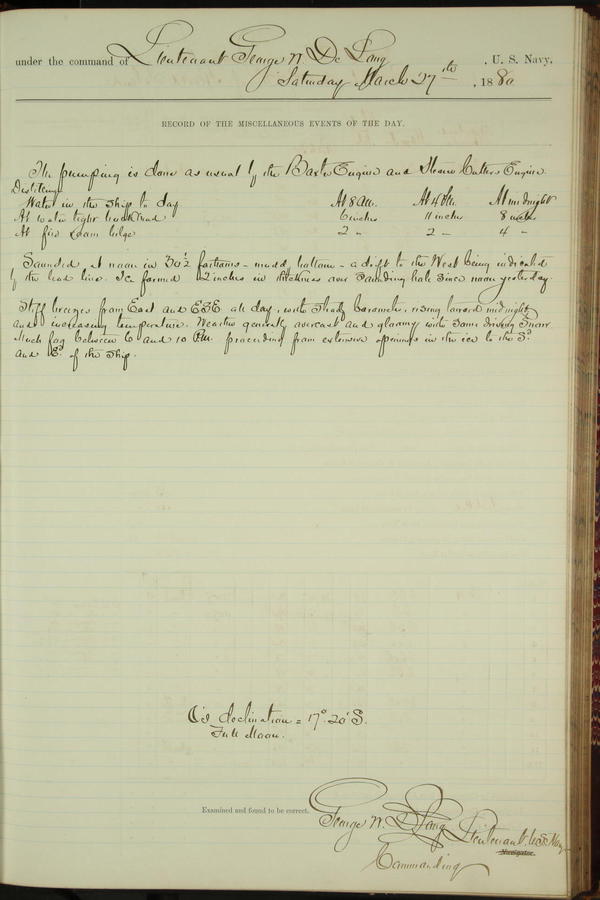 under the command of Lieutenant George W. De Long, U. S. Navy,
Saturday March 27th, 1880
RECORD OF THE MISCELLANEOUS EVENTS OF THE DAY.
The pumping is done as usual by the Baxter Engine and Steam Cutters Engine.
Distilling
Water in the ship to day At 8 a.m. At 4 P.M. At midnight
At water tight bulkhead 6 inches 11 inches 8 inches
At fire room bilge 2 " 2 " 4 "
Sounded at noon in 30½ fathoms - mud bottom - a drift to the West being indicated
by the lead line. Ice formed 2 inches in thickness over sounding hole since noon yesterday.
Stiff breezes from East and ESE all day, with steady barometer, rising toward midnight,
and increasing temperature. Weather generally overcast and gloomy with some driving snow.
Much fog between 6 and 10 P.M. proceeding from extensive openings in the ice to the Sd
and Ed of the ship.
☾'s declination = 17° 20' S.
Full Moon.
Examined and found to be correct.
George W. De Long Lieutenant U.S. Navy
Navigator.
Commanding